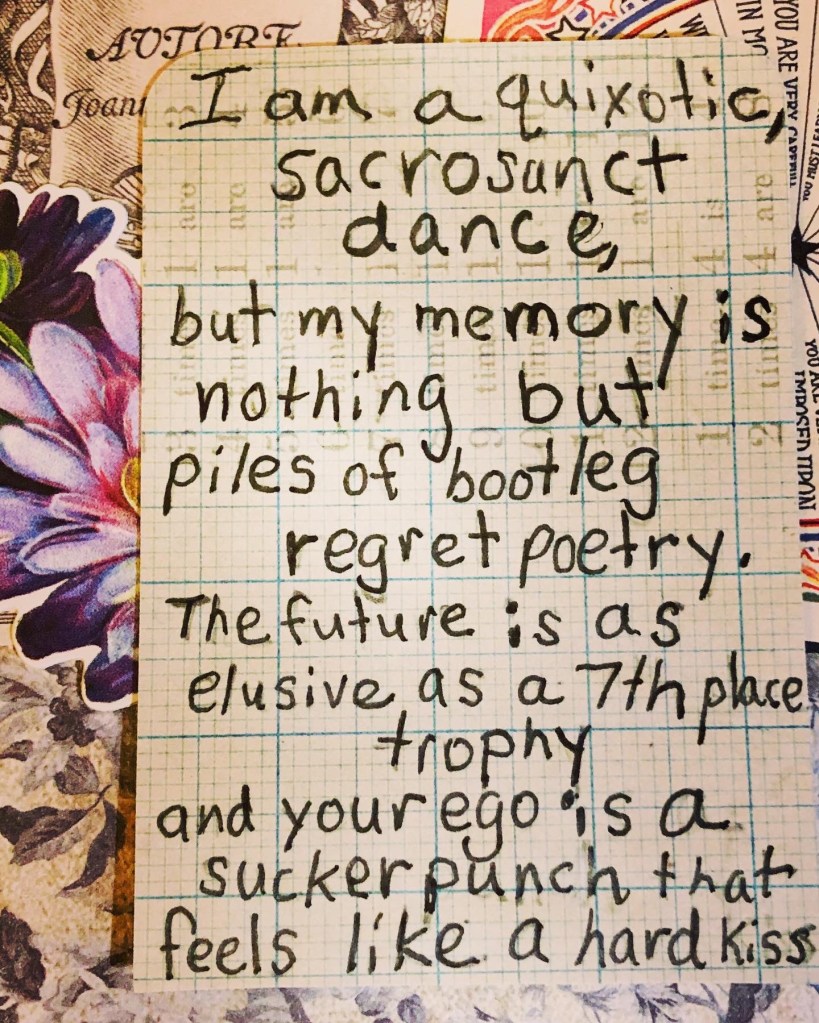 AUTORE
Joan
I am a quixotic,
sacrosanct
dance,
but my memory is
nothing but
piles of bootleg
regret poetry.
The future is as
elusive as a 7th place
trophy
and your ego is a
sucker punch that
feels like a hard kiss
YOU ARE VERY CAPABLE
IN MO